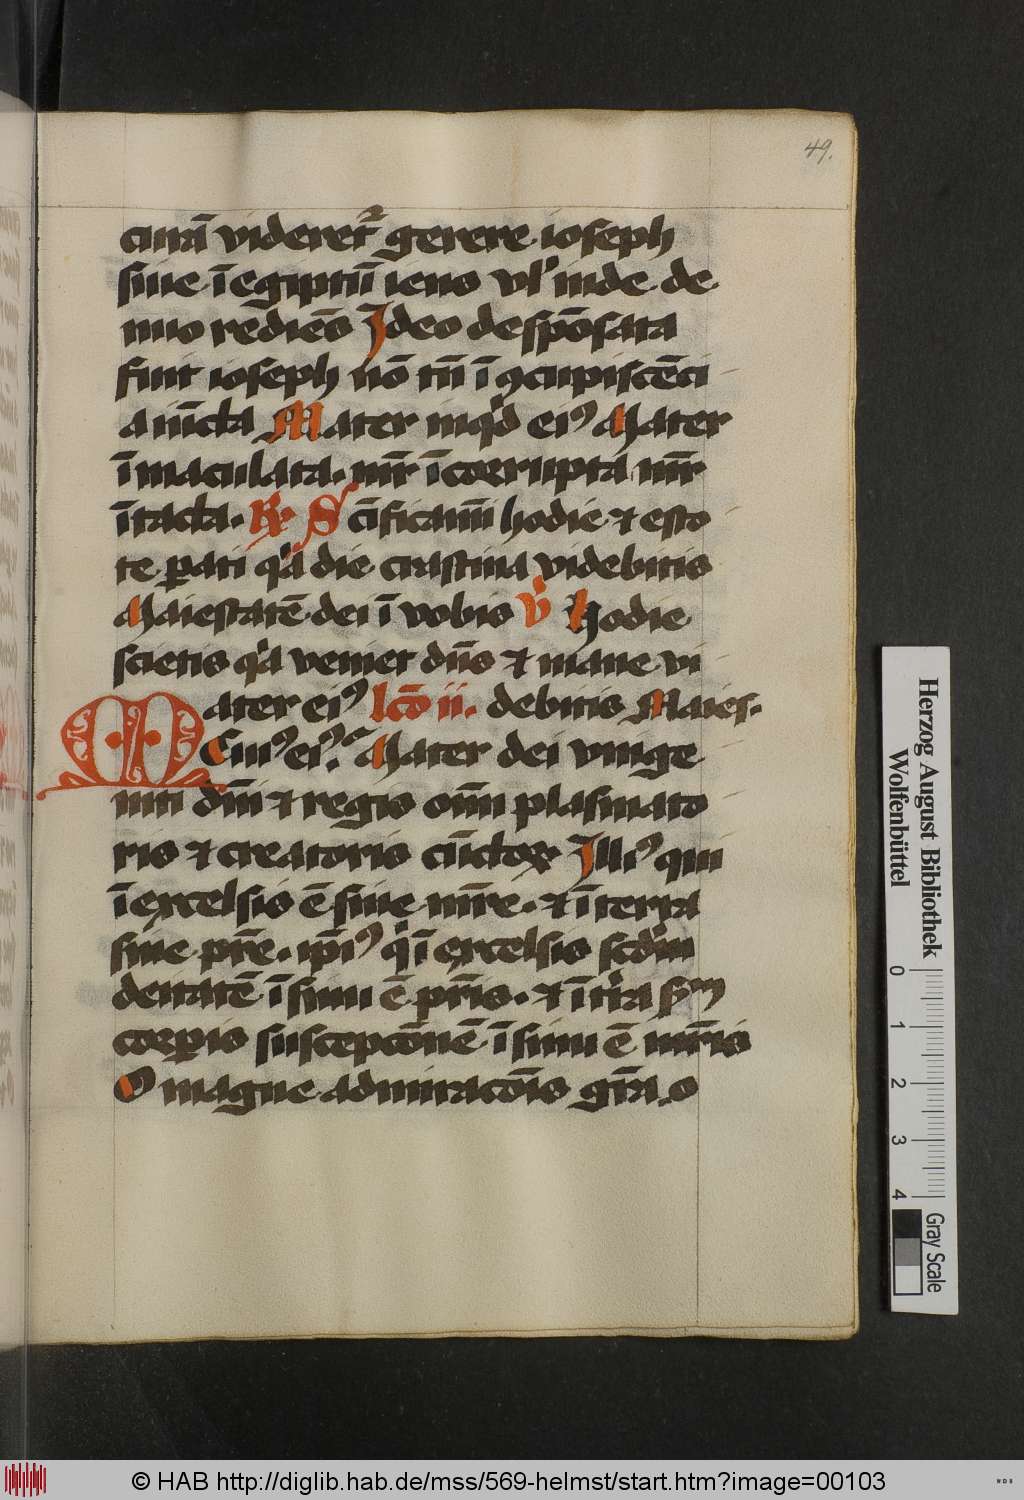 49.
curā videret᷑ gerere ioseph
siue ī egiptū iens vl' inde de
nuo rediēs Ideo despōsata
fuit ioseph nō tn̄ ī ꝯcupiscēci
a iūcta Mater inqͥd eiꝰ Mater
īmaculata. mr̄ īcorrupta mr̄
ītacta. R̷. Scīficamī hodie ⁊ esto
te ꝑati qͥa die crastina videbitis
Maiestatē dei ī vobis V̊ Hodie
scietis qͥa veniet dn̄s ⁊ mane vi
Mater eiꝰ lcō ii. debitis Maies.
Cuiꝰ eiꝰ. Mater dei vnige
niti dn̄i ⁊ regis oīm plasmato
ris ⁊ creatoris cūctoꝝ Illiꝰ qui
ī excelsis ē sine mr̄e. ⁊ ī terra
sine pr̄e. ip̄iꝰ qͥ ī excelsis scd̄m
deitatē ī sinu ē pr̄is. ⁊ ī tr̄ra sm̄
corꝑis susceptōnē ī sinu ē mr̄is
O magne admiratōis gr̄a. o
Herzog August Bibliothek
Wolfenbüttel
0 1 2 3 4
Gray Scale
© HAB http://diglib.hab.de/mss/569-helmst/start.htm?image=00103